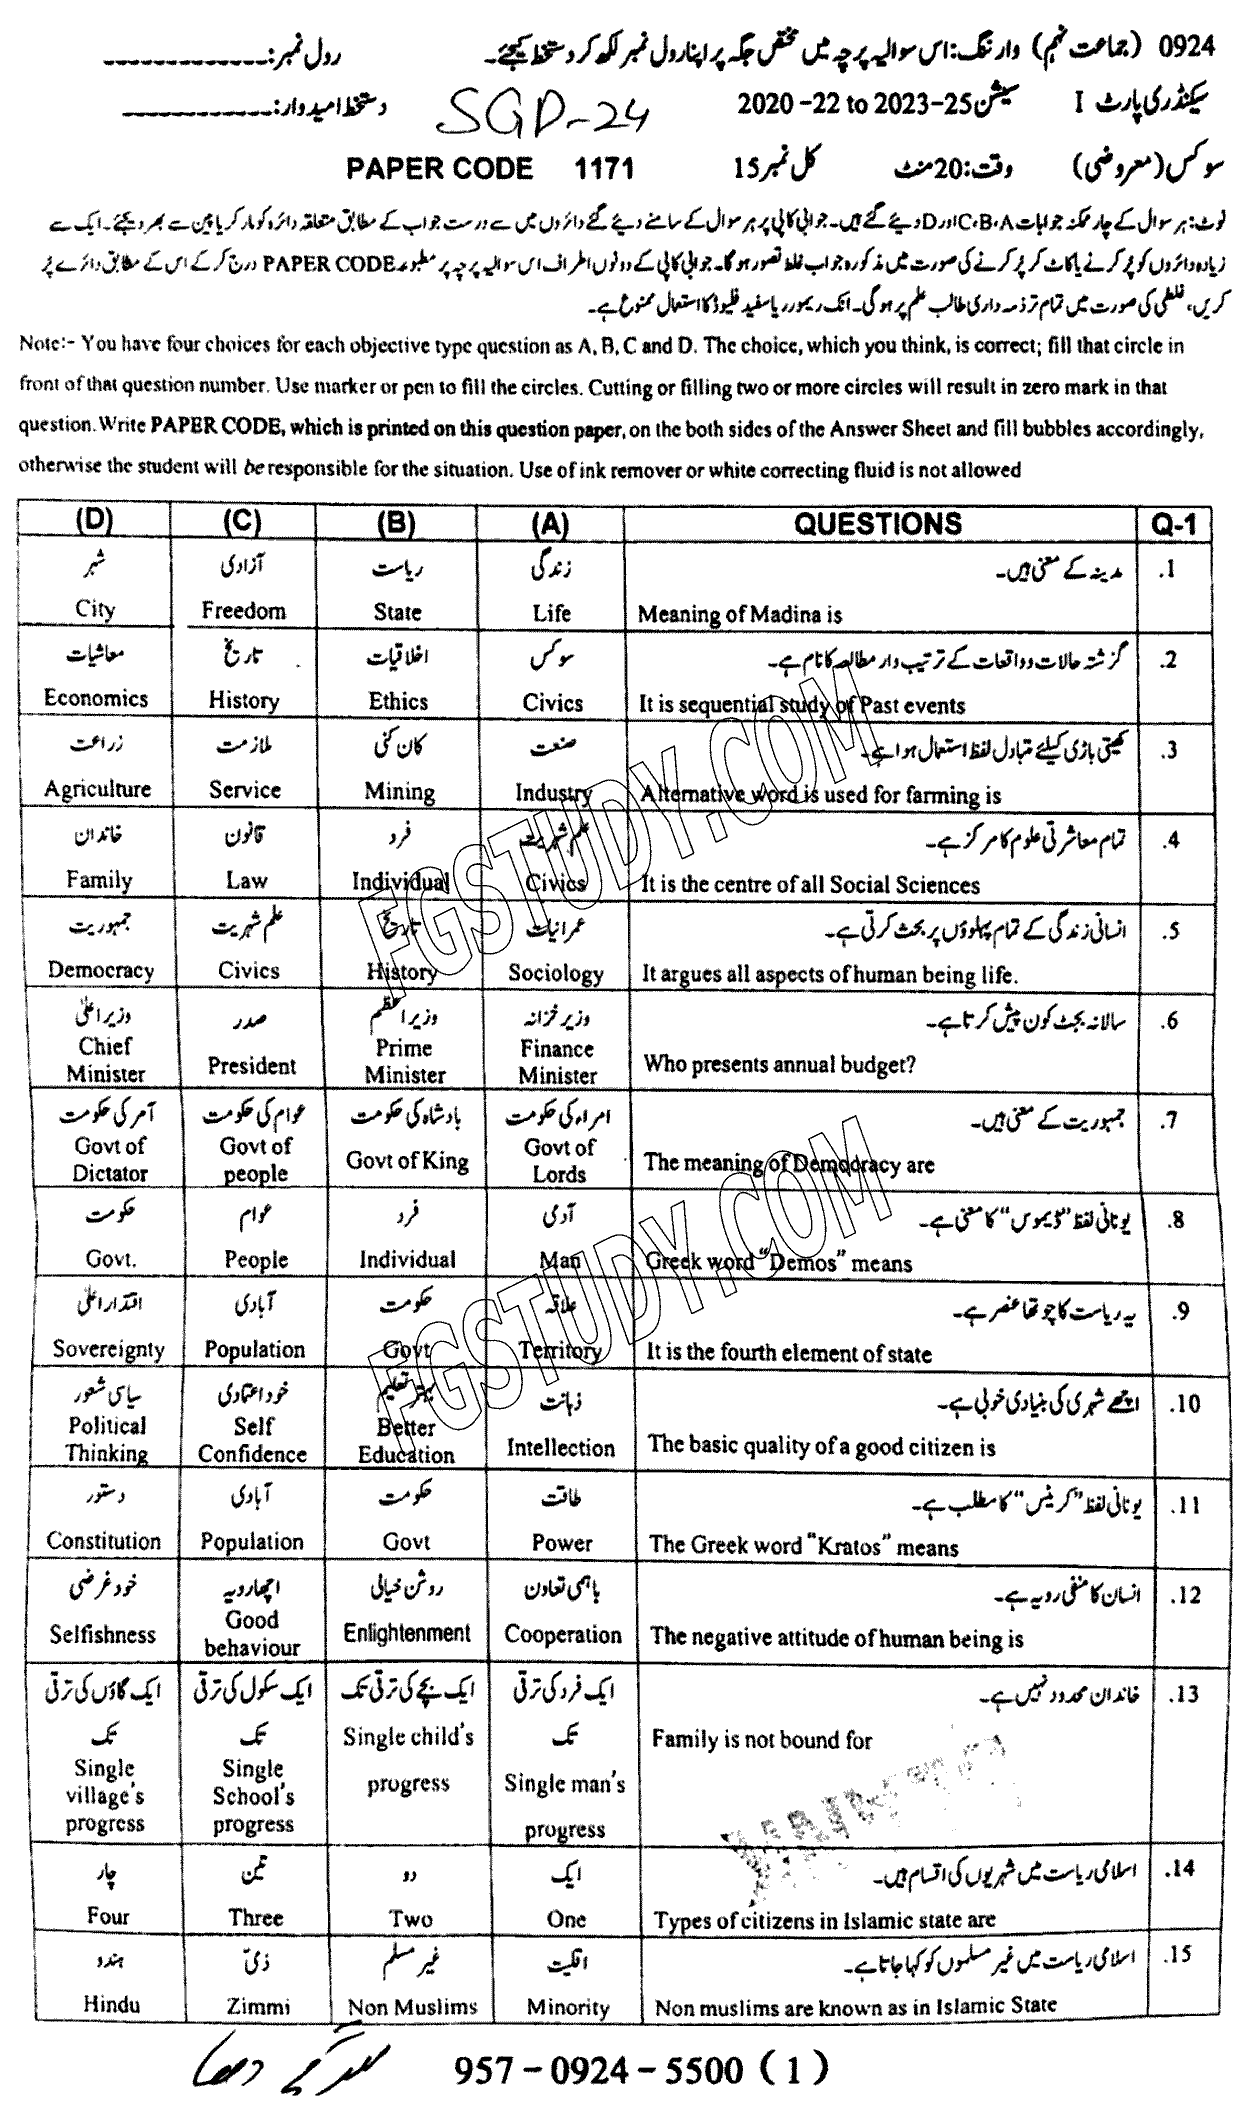 0924 (جماعت نہم) وارننگ: اس سوالیہ پرچہ میں مختص جگہ پر اپنا رول نمبر لکھ کر دستخط کیجئے۔ رول نمبر: -------------
سیکنڈری پارٹ I سیشن 2020 -22 to 2023-25 SGD-24 دستخط امیدوار: ------------
سوکس (معروضی) وقت: 20 منٹ کل نمبر 15 PAPER CODE 1171
نوٹ: ہر سوال کے چار ممکنہ جوابات A، B، C اور D دیئے گئے ہیں۔ جوابی کاپی پر ہر سوال کے سامنے دیئے گئے دائروں میں سے درست جواب کے مطابق متعلقہ دائرہ کو مارکر یا پین سے بھر دیجئے۔ ایک سے
زیادہ دائروں کو پُر کرنے یا کاٹ کر پُر کرنے کی صورت میں مذکورہ جواب غلط تصور ہوگا۔ جوابی کاپی کے دونوں اطراف اس سوالیہ پرچہ پر مطبوعہ PAPER CODE درج کر کے اس کے مطابق دائرے پُر
کریں، غلطی کی صورت میں تمام تر ذمہ داری طالب علم پر ہوگی۔ انک ریمور یا سفید فلیوڈ کا استعمال ممنوع ہے۔
Note:- You have four choices for each objective type question as A, B, C and D. The choice, which you think, is correct; fill that circle in
front of that question number. Use marker or pen to fill the circles. Cutting or filling two or more circles will result in zero mark in that
question. Write PAPER CODE, which is printed on this question paper, on the both sides of the Answer Sheet and fill bubbles accordingly,
otherwise the student will be responsible for the situation. Use of ink remover or white correcting fluid is not allowed
(D) (C) (B) (A) QUESTIONS Q-1
شہر آزادی ریاست زندگی مدینہ کے معنی ہیں۔ .1
City Freedom State Life Meaning of Madina is
معاشیات تاریخ اخلاقیات سوکس گزشتہ حالات و واقعات کے ترتیب وار مطالعہ کا نام ہے۔ .2
Economics History Ethics Civics It is sequential study of Past events
زراعت ملازمت کان کنی صنعت کھیتی باڑی کیلئے متبادل لفظ استعمال ہوا ہے۔ .3
Agriculture Service Mining Industry Alternative word is used for farming is
خاندان قانون فرد علم شہریت تمام معاشرتی علوم کا مرکز ہے۔ .4
Family Law Individual Civics It is the centre of all Social Sciences
جمہوریت علم شہریت تاریخ عمرانیات انسانی زندگی کے تمام پہلوؤں پر بحث کرتی ہے۔ .5
Democracy Civics History Sociology It argues all aspects of human being life.
وزیر اعلیٰ صدر وزیر اعظم وزیر خزانہ سالانہ بجٹ کون پیش کرتا ہے۔ .6
Chief Minister President Prime Minister Finance Minister Who presents annual budget?
آمر کی حکومت عوام کی حکومت بادشاہ کی حکومت امراء کی حکومت جمہوریت کے معنی ہیں۔ .7
Govt of Dictator Govt of people Govt of King Govt of Lords The meaning of Democracy are
حکومت عوام فرد آدمی یونانی لفظ "ڈیموس" کا معنی ہے۔ .8
Govt. People Individual Man Greek word "Demos" means
اقتدار اعلیٰ آبادی حکومت علاقہ یہ ریاست کا چوتھا عنصر ہے۔ .9
Sovereignty Population Govt Territory It is the fourth element of state
سیاسی شعور خود اعتمادی بہتر تعلیم ذہانت اچھے شہری کی بنیادی خوبی ہے۔ .10
Political Thinking Self Confidence Better Education Intellection The basic quality of a good citizen is
دستور آبادی حکومت طاقت یونانی لفظ "کریٹس" کا مطلب ہے۔ .11
Constitution Population Govt Power The Greek word "Kratos" means
خود غرضی اچھا رویہ روشن خیالی باہمی تعاون انسان کا منفی رویہ ہے۔ .12
Selfishness Good behaviour Enlightenment Cooperation The negative attitude of human being is
ایک گاؤں کی ترقی تک ایک سکول کی ترقی تک ایک بچے کی ترقی تک ایک فرد کی ترقی تک خاندان محدود نہیں ہے۔ .13
Single village's progress Single School's progress Single child's progress Single man's progress Family is not bound for
چار تین دو ایک اسلامی ریاست میں شہریوں کی اقسام ہیں۔ .14
Four Three Two One Types of citizens in Islamic state are
ہندو ذمّی غیر مسلم اقلیت اسلامی ریاست میں غیر مسلموں کو کہا جاتا ہے۔ .15
Hindu Zimmi Non Muslims Minority Non muslims are known as in Islamic State
957 - 0924 - 5500 ( 1 )
FGSTUDY.COM
FGSTUDY.COM